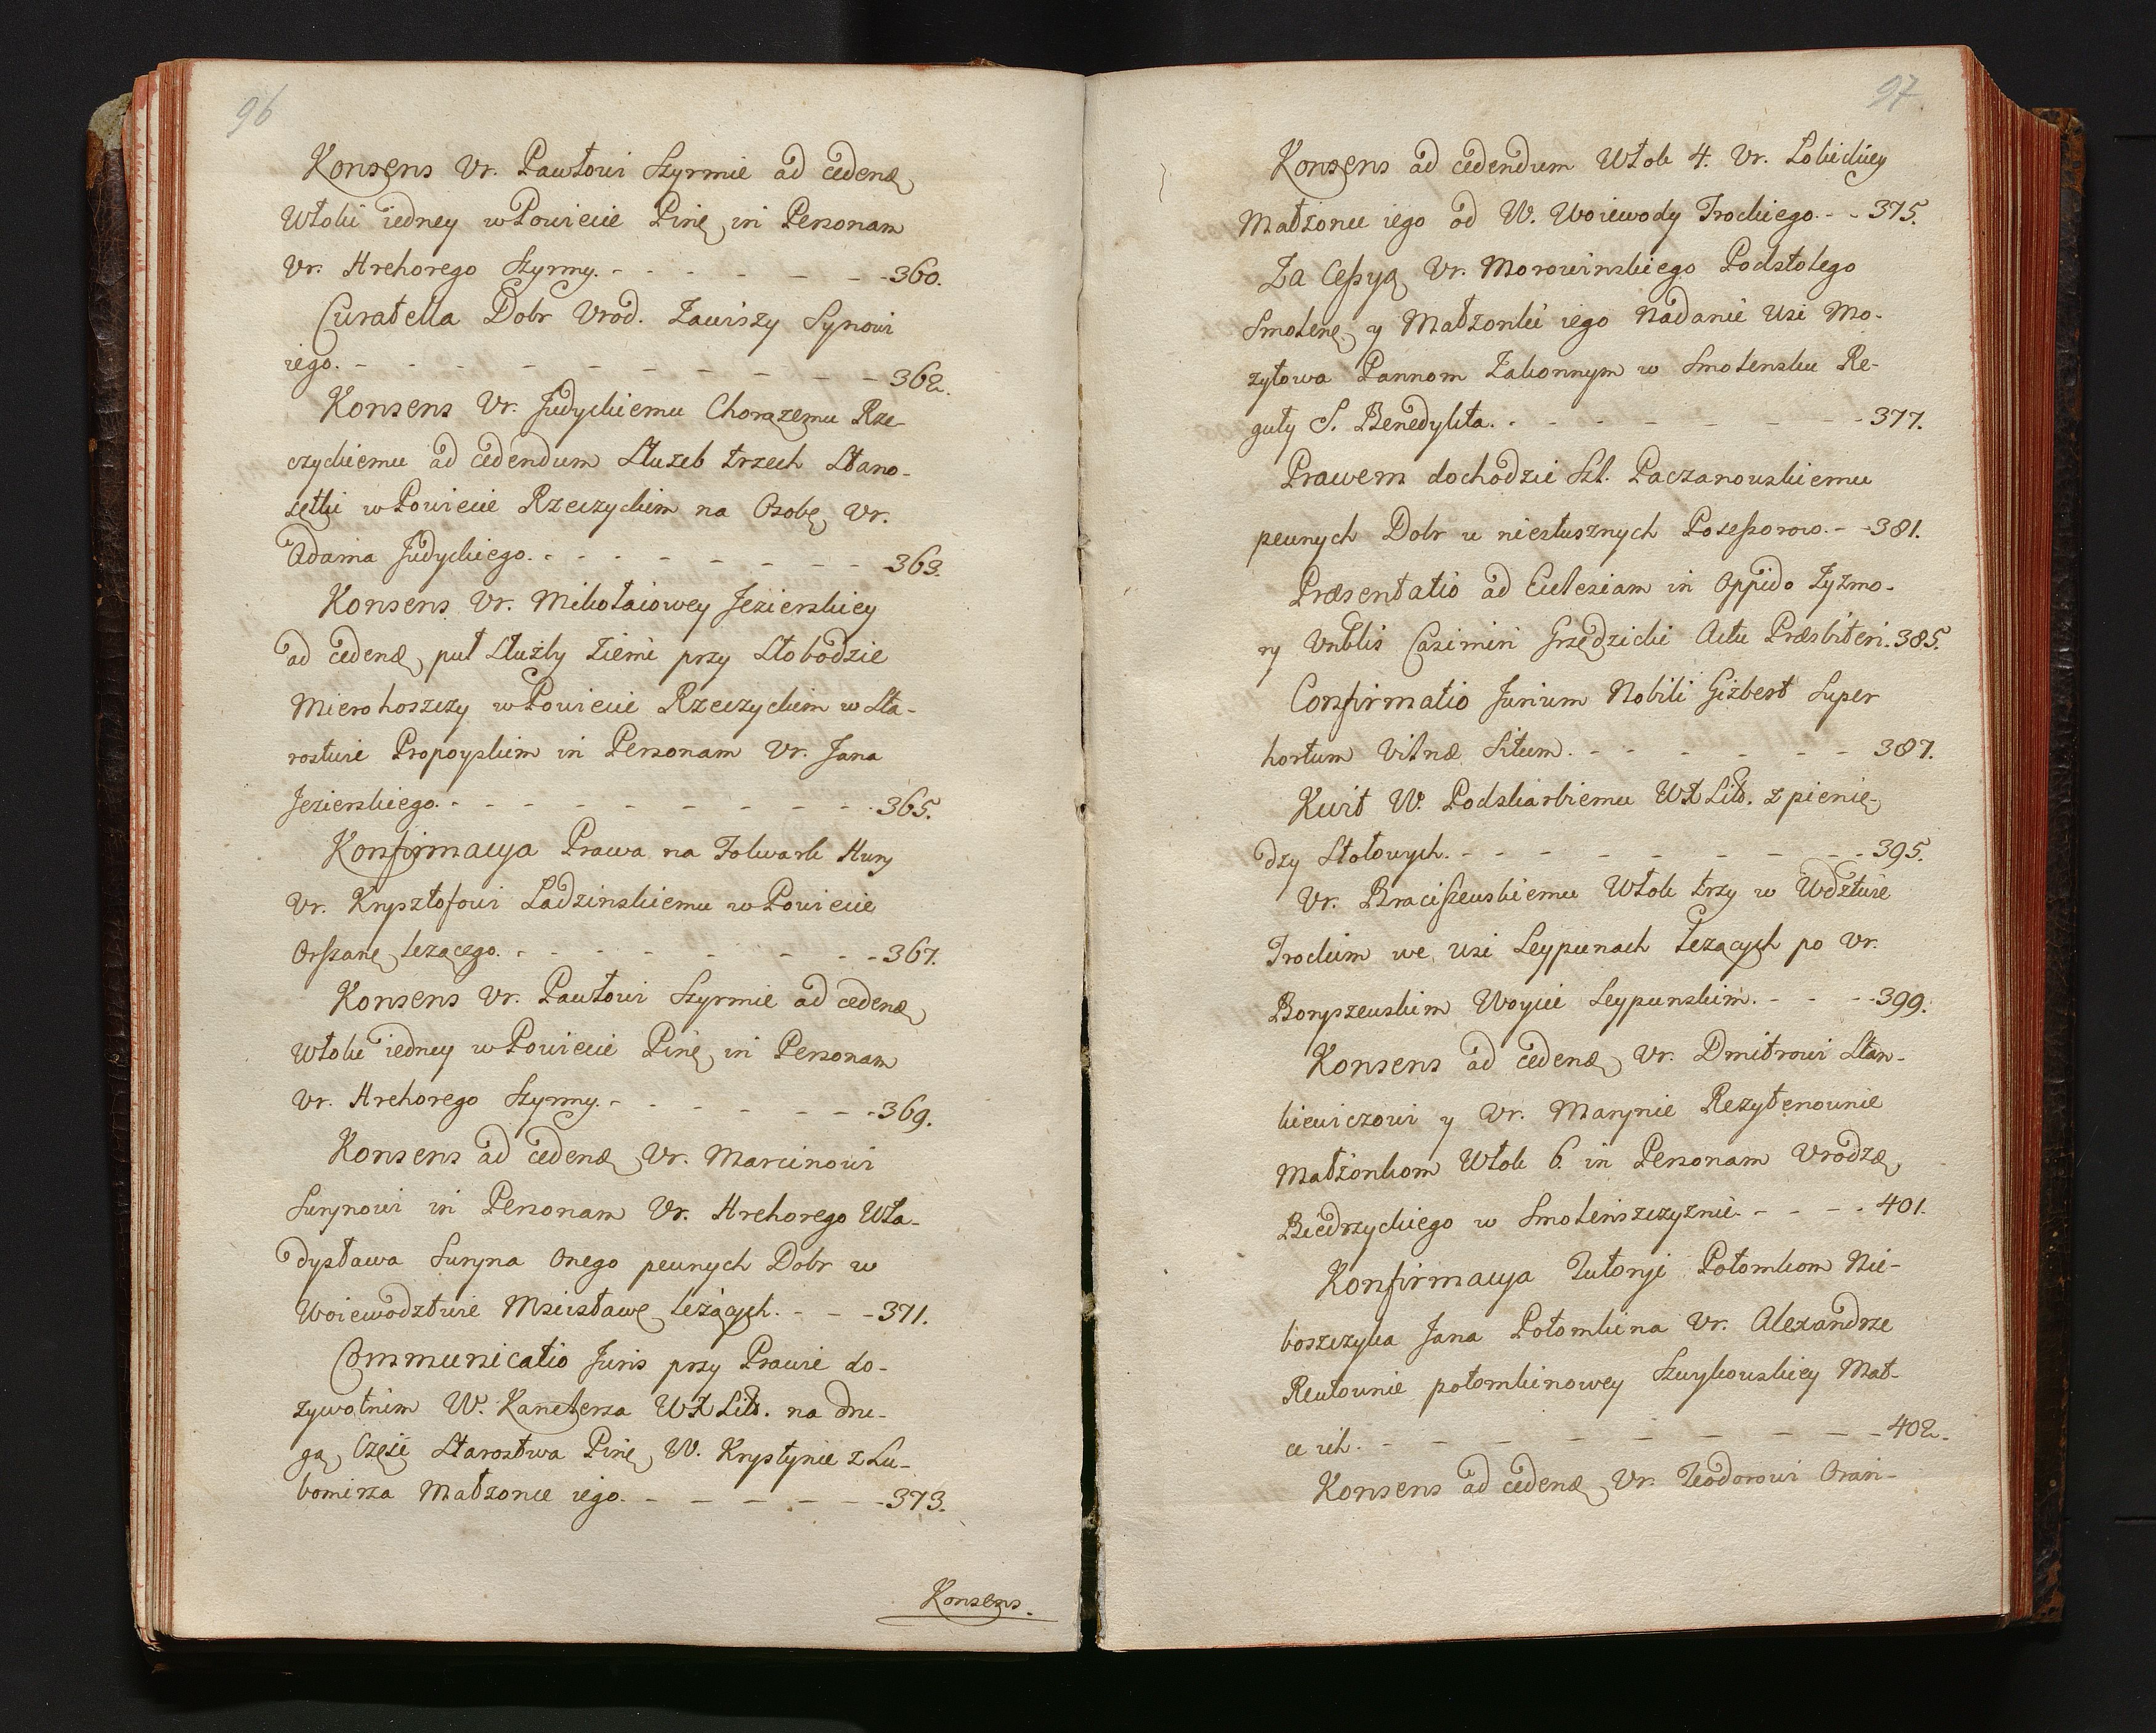 96
Konsens Vr. Pawłowi Szyrmie ad cedenḓ
Włoki iedney w Powiecie Pinẹ in Personam
Vr. Hrehorego Szyrmy. - - - - - - 360.
Curatella Dobr Vrod. Zawiszy Synowi
iego. - - - - - - - - - - 362.
Konsens Vr. Judyckiemu Chorążemu Rze-
czyckiemu ad cedendum Służeb trzech Stano-
sętki w Powiecie Rzeczyckim na Osobę Vr.
Adama Judyckiego. - - - - - - - 363.
Konsens Vr. Mikołaiowey Jezierskiey
ad cedenḓ puł Służby Ziemi przy Słobodzie
Mierohoszczy w Powiecie Rzeczyckim w Sta-
rostwie Propoyskim in Personam Vr. Jana
Jezierskiego. - - - - - - - - - 365.
Konfirmacya Prawa na Folwark Hury
Vr. Krysztofowi Ładzinskiemu w Powiecie
Orszanẹ leżącego. - - - - - - - 367.
Konsens Vr. Pawłowi Szyrmie ad cedenḓ
Włoki iedney w Powiecie Pinẹ in Personam
Vr. Hrehorego Szyrmy. - - - - - - 369.
Konsens ad cedenḓ Vr. Marcinowi
Surynowi in Personam Vr. Hrehorego Wła-
dysława Suryna Onego pewnych Dobr w
Woiewodztwie Mscisławẹ leżących. - - - 371.
Communicatio Juris przy Prawie do-
żywotnim W. Kanclerza WXLitt. na dru-
gą Część Starostwa Pinẹ W. Krystynie z Lu-
bomirza Małżonce iego. - - - - - - 373.
Konsens.
97
Konsens ad cedendum Włok 4. Vr. Łokuckiey
Małżonce iego od W. Woiewody Trockiego. - - 375.
Za Cessyą Vr. Morowinskiego Podstolego
Smolenẹ y Małżonki iego Nadanie Wsi Mo-
zyłowa Pannom Zakonnym w Smolensku Re-
guły S. Benedykta. - - - - - - - 377.
Prawem dochodzic Szl. Paczanowskiemu
pewnych Dobr u niesłusznych Possessorow. - - 381.
Præsentatio ad Ecclesiam in Oppido Zyzmo-
ry Vnblis Casimiri Grzędzicki Actu Præsbiteri. 385.
Confirmatio Jurium Nobili Gizbert Super
hortum Vilnæ Situm. - - - - - - 387.
Kwit W. Podskarbiemu WXLitt. z pienię-
dzy Stołowych. - - - - - - - - 395.
Vr. Braciszewskiemu Włok trzy w Wdztwie
Trockim we Wsi Leypunach leżących po Vr.
Boryszewskim Woycie Leypunskim. - - - 399.
Konsens ad cedenḓ Vr. Dmitrowi Stan-
kiewiczowi y Vr. Marynie Rezytenownie
Małżonkom Włok 6. in Personam Vrodzḓ
Biedrzyckiego w Smolenszczyznie. - - - - 401.
Konfirmacya Tutoryi Potomkom Nie-
boszczyka Jana Potomkina Vr. Alexandrze
Reutownie potomkinowey Szuykowskiey Mat-
ce ich. - - - - - - - - - 402.
Konsens ad cedenḓ Vr. Teodorowi Oran-